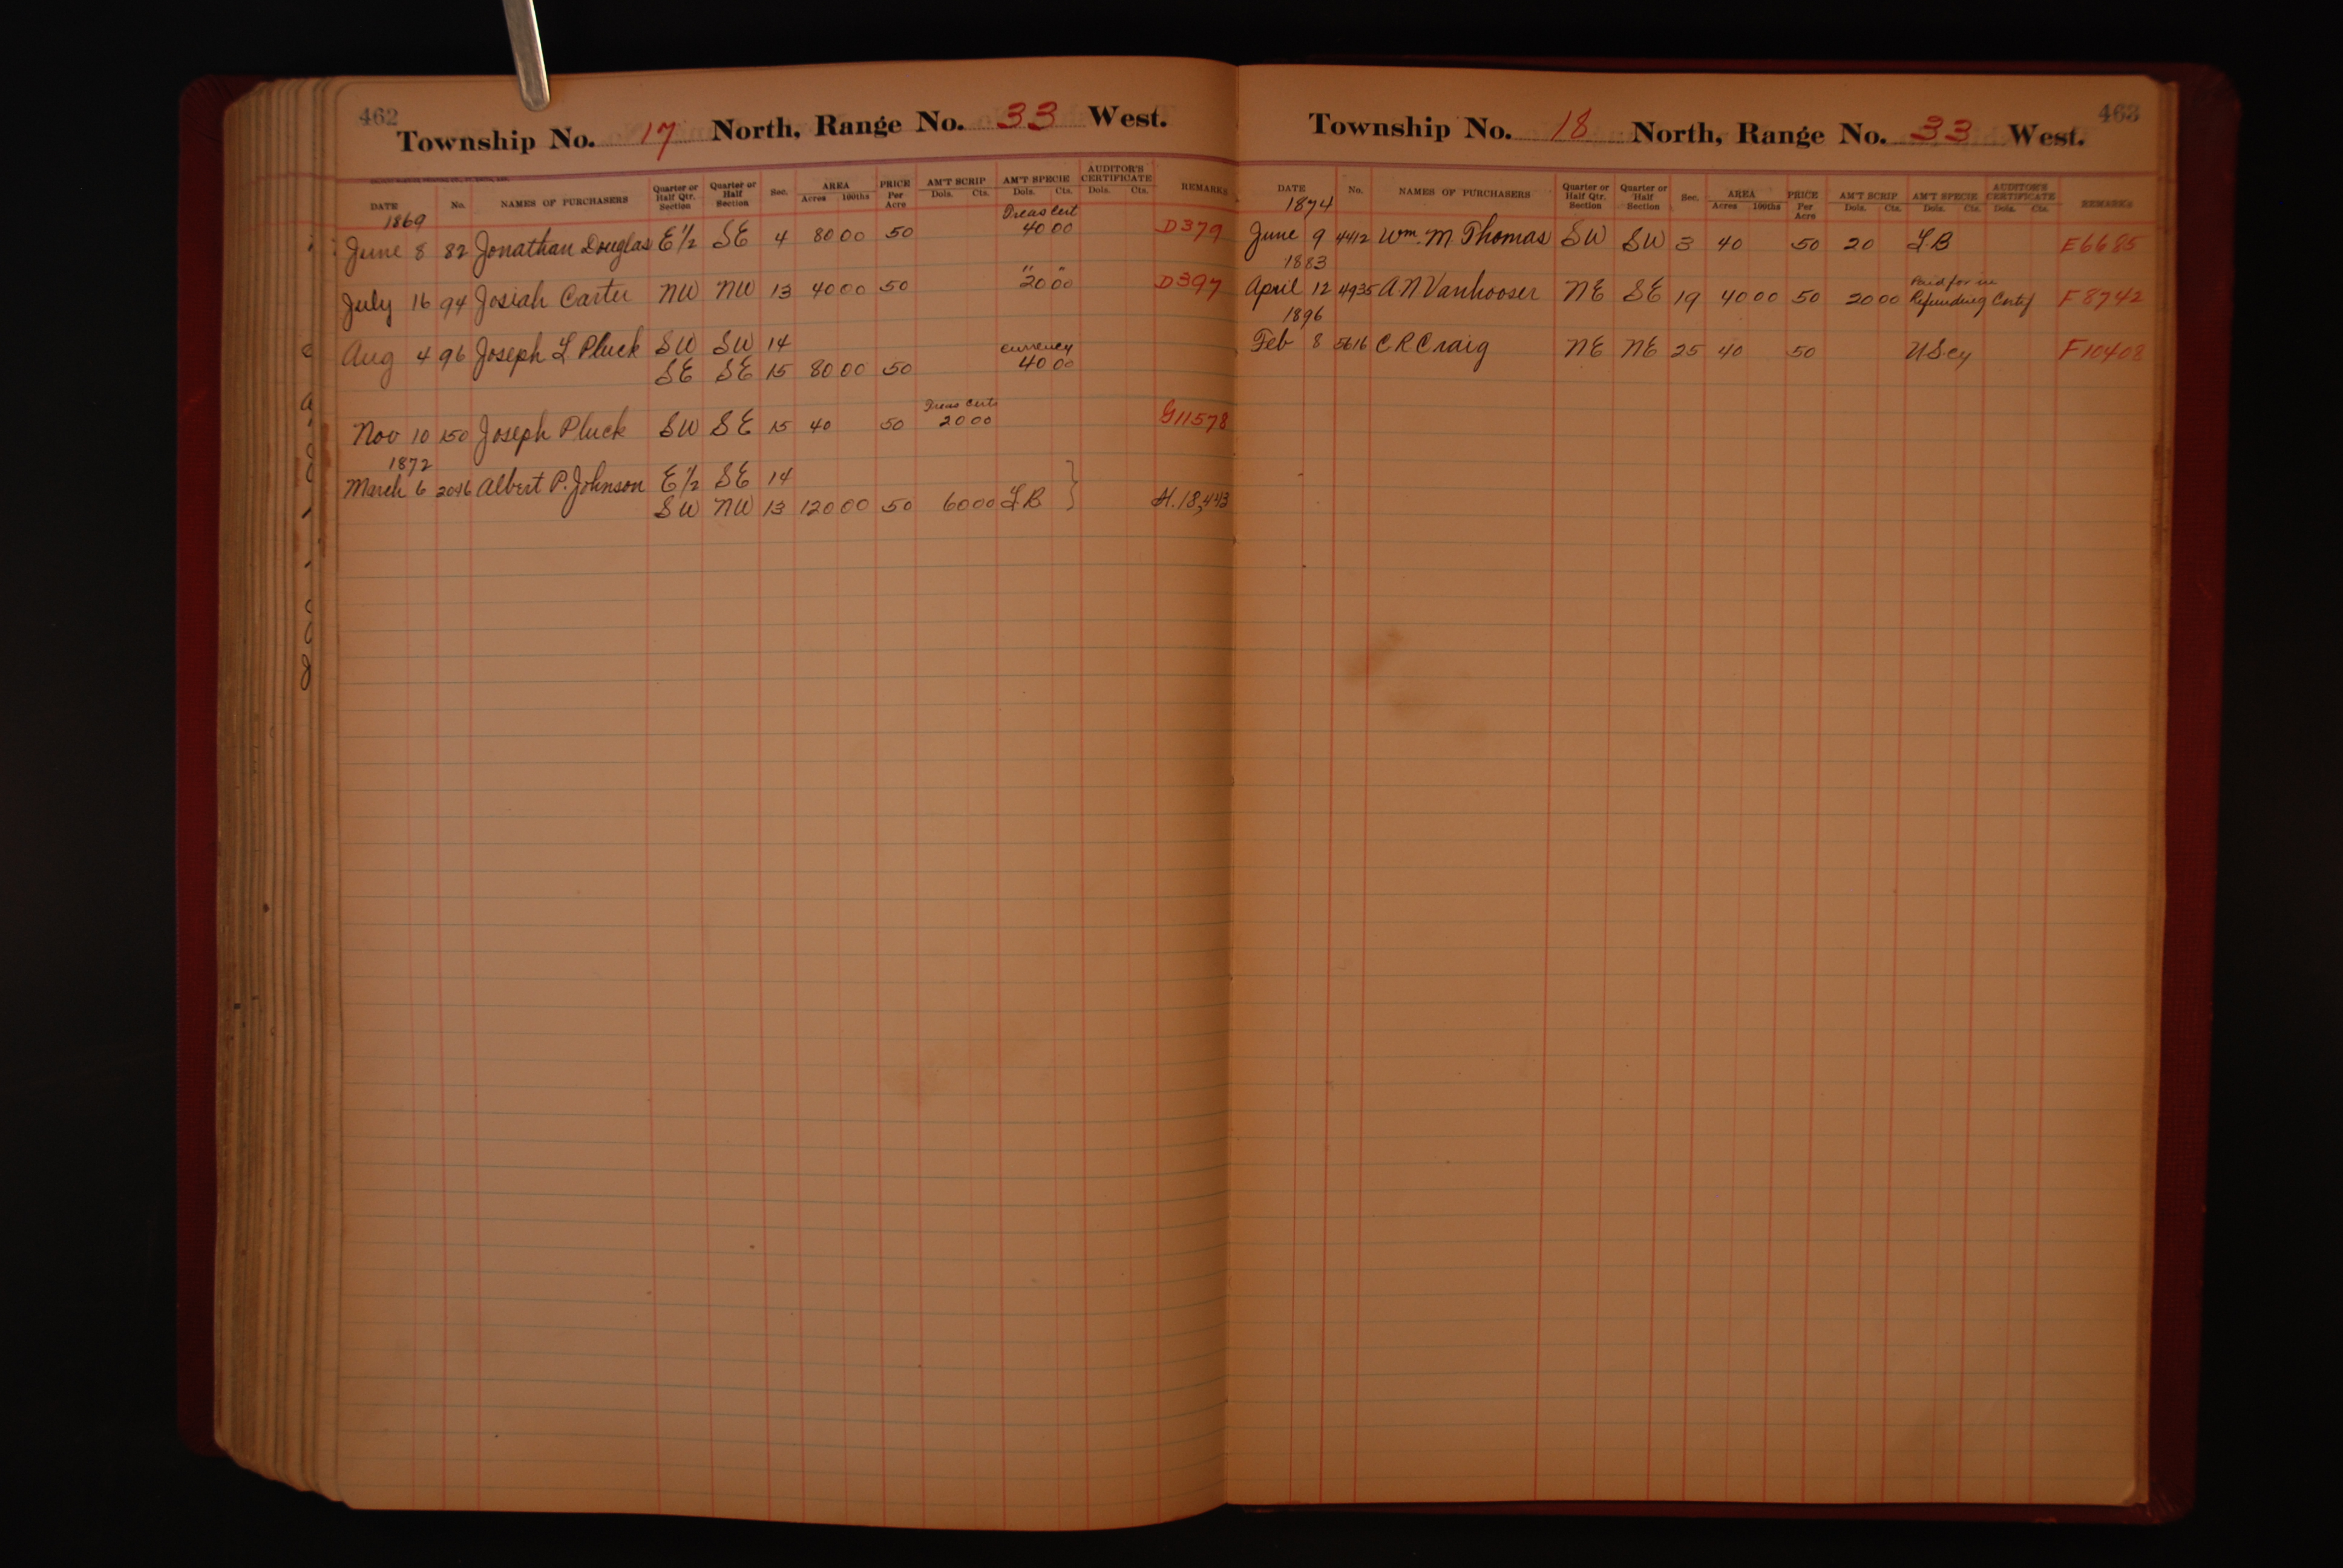 462
Township No. 17 North, Range No. 33 West.
DATE No. NAMES OF PURCHASERS Quarter or Half Qtr. Section Quarter or Half Section Sec. AREA Acres 100ths PRICE Per Acre AM'T SCRIP Dols. Cts. AM'T SPECIE Dols. Cts. AUDITOR'S CERTIFICATE Dols. Cts. REMARKS
1869 Treas Cert
June 8 82 Jonathan Douglas E½ SE 4 80 00 50 40 00 D379
July 16 94 Josiah Carter NW NW 13 40 00 50 " 20 " 00 D397
Aug 4 96 Joseph L Pluck SW SW 14 currency
SE SE 15 80 00 50 40 00
Treas Certs
Nov 10 150 Joseph Pluck SW SE 15 40 50 20 00 G11578
1872
March 6 2046 Albert P. Johnson E½ SE 14
SW NW 13 120 00 50 60 00 L B H.18,443
463
Township No. 18 North, Range No. 33 West.
DATE No. NAMES OF PURCHASERS Quarter or Half Qtr. Section Quarter or Half Section Sec. AREA Acres 100ths PRICE Per Acre AM'T SCRIP Dols. Cts. AM'T SPECIE Dols. Cts. AUDITOR'S CERTIFICATE Dols. Cts. REMARKS
1874
June 9 4412 Wm. M Thomas SW SW 3 40 50 20 L B E6685
1883 Paid for in
April 12 4935 A N Vanhooser NE SE 19 40 00 50 20 00 Refunding Certif F8742
1896
Feb 8 5616 C R Craig NE NE 25 40 50 U S cy F10408